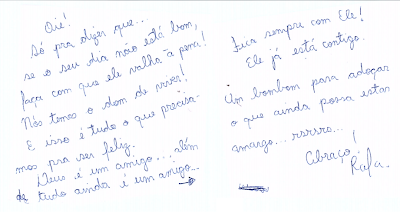 Oie!
Só pra dizer que...
se o seu dia não está bom,
faça com que ele valha a pena!
Nós temos o dom de viver!
E isso é tudo o que precisa-
mos pra ser feliz.
Deus é um amigo... além
de tudo ainda é um amigo...
Fica sempre com Ele!
Ele já está contigo.
Um bombom para adoçar
o que ainda possa estar
amargo... rsrsrs...
Abraço!
Rafa.